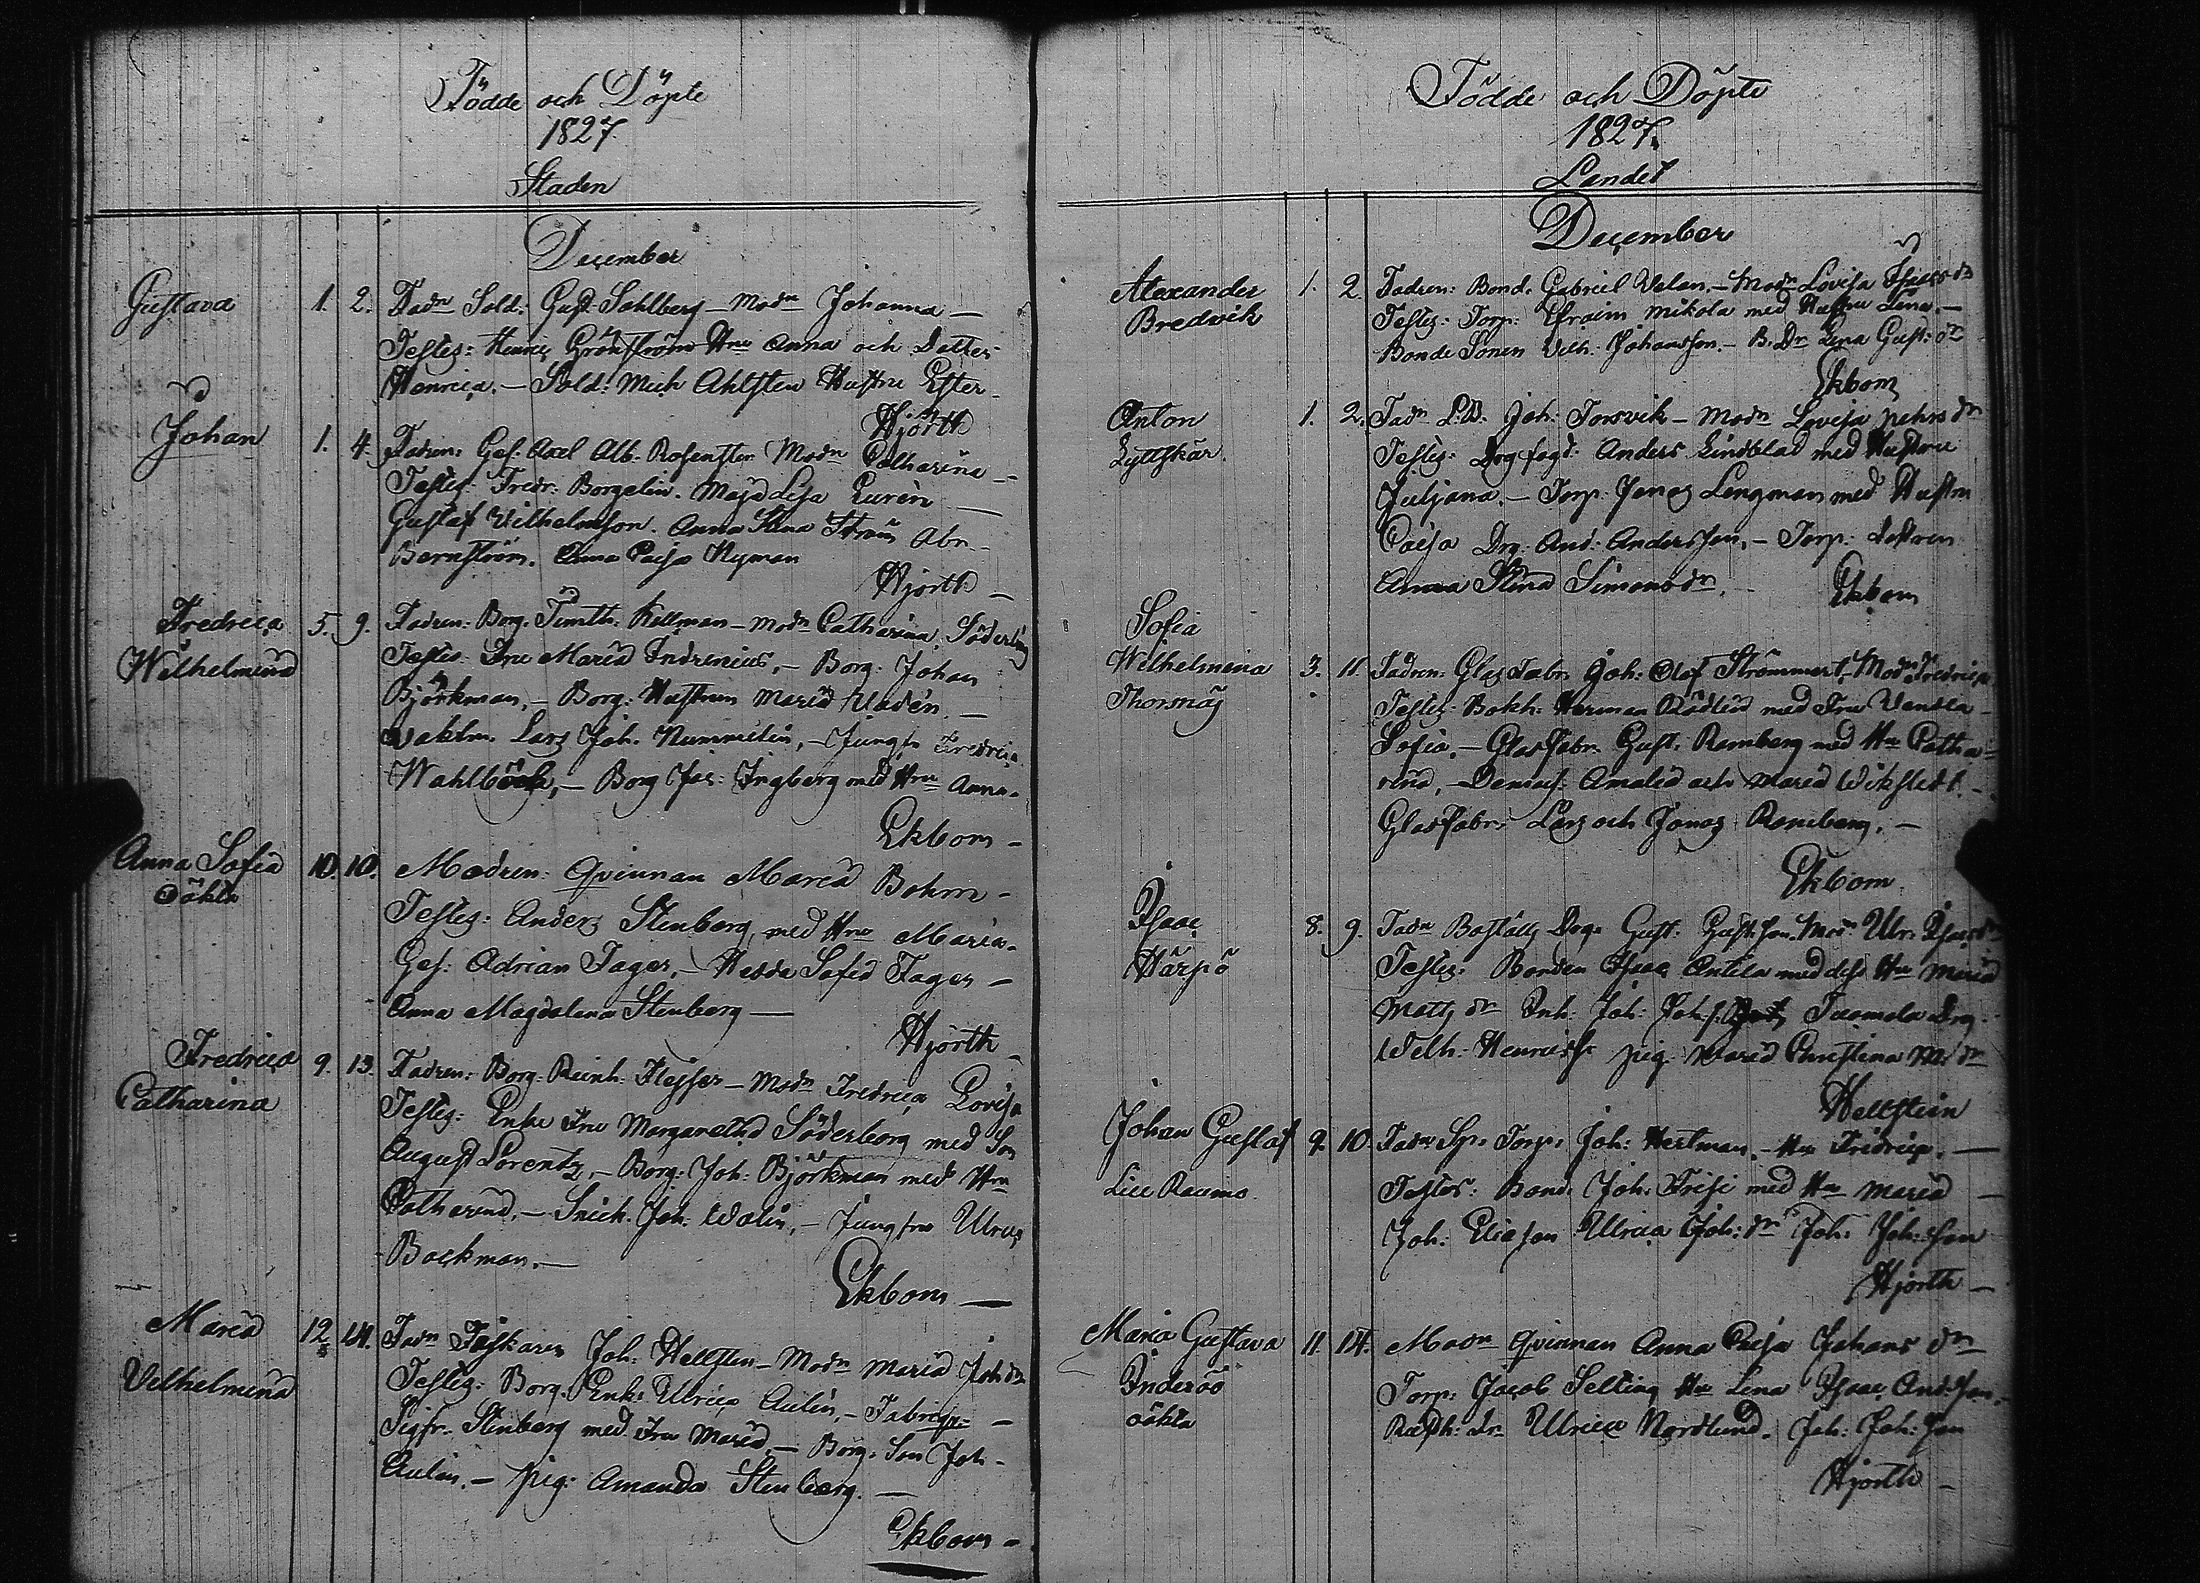 Födde och Döpte
1827.
Staden
December
Gustava 1. 2. Fadn Sold: Gust. Sohlberg – Modn Johanna –
Testes: Henric Grönström Hru Anna och Dotter
Henrica. – Sold: Mich Ahlsten Hustru Ester –
Hjorth
Johan 1. 4. Fadren: Ges. Axel Alb. Rosensten Modn Catharina –
Testes: Fredr: Borgelin. Maja Lisa Eurén –
Gustaf Vilhelmson. Anna Stina Ström Abr.
Bernström. Anna Caisa Nyman
Hjorth –
Fredrica 5. 9. Fadren: Borg. Timth. Kellman – Modn Catharina Söderling
Wilhelmina Testes: Fru Maria Indrenius, – Borg. Johan
Björkman, – Borg: Hustrun Maria Uladén. –
Vaktm. Lars Joh. Nummelin, – Jungfr Fredrica
Wahlbäck, – Borg Jac: Ingberg med Hru Anna.
Ekbom –
Anna Sofia 10. 10. Modren: Qvinnan Maria Bohm –
oäkta Testes: Anders Stenberg, med Hru Maria.
Ges: Adrian Fager, – Hedda Sofia Fager –
Anna Magdalena Stenberg –
Hjorth –
Fredrica 9. 13. Fadren: Borg: Reinh. – Modn Fredrica Lovisa
Catharina Testes: Enke Fru Margaretha Söderborg med Son
August Lorentz, – Borg: Joh: Björkman med Hru
Catharina, – Snick. Joh: Walin, – Jungfru Ulrica
Backman. –
Ekbom –
Maria 12. 14. Fadn Fiskaren Joh: Hellsten – Modn Maria Joh: dr
Vilhelmina Testes: Borg. Enk: Ulrica Aulin, – Fabriqs= –
Sigfr. Stenberg med Fru Maria – Borg. Son Joh –
Aulin. – pig: Amanda Stenberg. –
Ekbom –
Födde och Döpte
1827.
Landet
December
Alexander 1. 2. Fadren: Bond. Gabriel Valen. – Modn Lovisa Isacsdr
Bredvik Testes: Torp: Efraim Mikola med Hustru Lena. –
Bonde Sonen Vilh. Johansson. – B. Dr Lena Gust: dr
Ekbom
Anton 1. 2. Fadn L.B. Joh: Torsvik – Modn Lovisa Pehrsdr
Lyttskär. Testes: Anders Lindblad med Hustru
Juljana. – Torp. Jonas Lengman med Hustru
Caisa Drg. And: Andersson, – Torp: dottren
Anna Stina Simonsdr. – Ekbom
Sofia
Wilhelmina 3. 11. Fadren: Glas Fabr. Joh: Olof Strömmert, Modn Fredrica
Thorsnäs Testes: Bokh: Herman Rödlin med Fru Vendla –
Sofia. – Glasfabr. Gust. Ramberg med Hru Catha=
rina, – Demois: Amalia och Maria Wikstedt. –
Glasfabr. Lars och Jonas Ramberg. –
Ekbom
Isaac 8. 9. Fadn Boställs Drg. Gust. Gust: son. Modn Ulr: Isacsdr
Härpö Testes: Bonden Isaac Anttila med dess Hru Maria
Matts dr Inh. Joh: Joh: Tuomola Drg.
Wilh: Henricss pig. Maria Christina M: dr
Hellstén
Johan Gustaf 9. 10. Fadn Sp. Torp: Joh: Hertman. – Hru Fredrica. –
Lill Raumo. Testes: Bond. Joh: Frisi med Hru Maria –
Joh: Eliasson Ulrica Joh: dr Joh: Joh: son
Hjorth –
Maria Gustava 11. 14. Modn Qvinnan Anna Caisa Johans dr
Inderöö Torp: Jacob Selling Hru Lena Isaac And: son.
oäkta Ulrica Nordlund. Joh: Joh: son
Hjorth –